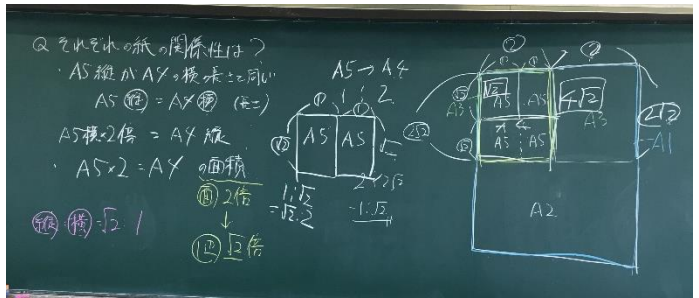 Q それぞれの紙の関係性は?
・A5縦がA4の横の長さと同い
A5 縦 = A4 横 (長さ)
A5横×2倍 = A4縦
・A5×2=A4 の面積
面 2倍
↓
√2倍
縦:横=√2:1
A5→A4
1:2
① ①
√2
A5 A5
1:√2
=√2:2
2:2√2
=1:√2
② ②
① ①
√2 A5 A5 4√2
A3 A3
2√2 2√2
A4
A5 A5
=A1
A2